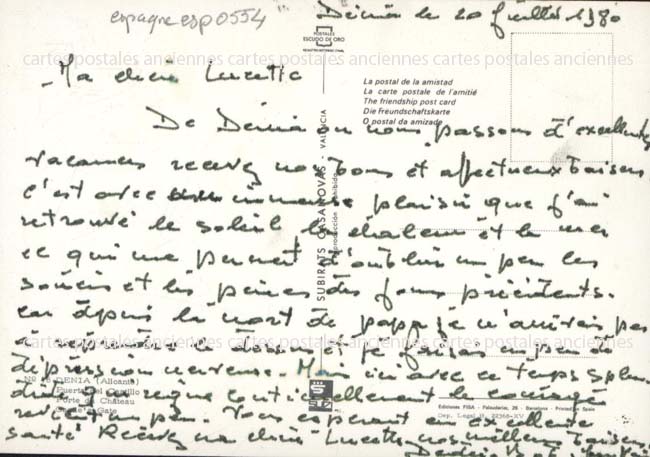 espagne esp0554
Dénia le 20 juillet 1980
POSTALES
ESCUDO DE ORO
cartes postales anciennes cartes postales anciennes cartes postales anciennes
Ma chère Lucette
La postal de la amistad
La carte postale de l'amitié
The friendship post card
Die Freundschaftskarte
O postal da amizade
SUBIRATS CASANOVAS. VALENCIA
De Dénia où nous passons d'excellentes
vacances recevez nos bons et affectueux baisers
c'est avec immense plaisir que j'ai
retrouvé le soleil la chaleur et la mer
ce qui me permet d'oublier un peu les
soucis et les peines des jours précédents.
car depuis la mort de papa je n'arrive pas
à le dessus et je faisais un peu de
dépression nerveuse. Mais ici avec ce temps splen-
dide qui règne continuellement le courage
revient un peu. Vous espérant en excellente
santé Recevez ma chère Lucette nos meilleurs baisers
cartes postales anciennes cartes postales anciennes cartes postales anciennes
DENIA (Alicante)
Puerta del Castillo
Porte du Château
Gate
Ediciones FISA - Palaudarias, 26 - Barcelona - Printed in Spain